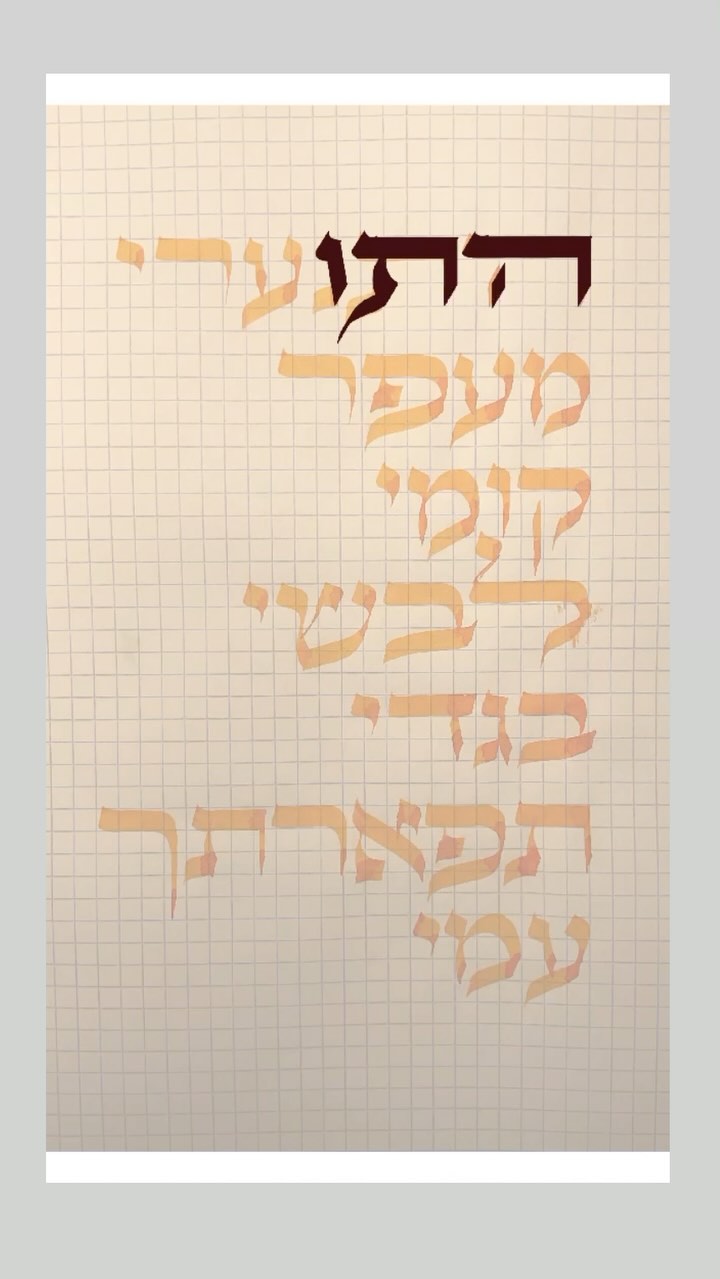 התנערי
מעפר
קומי
לבשי
בגדי
תפארתך
עמי